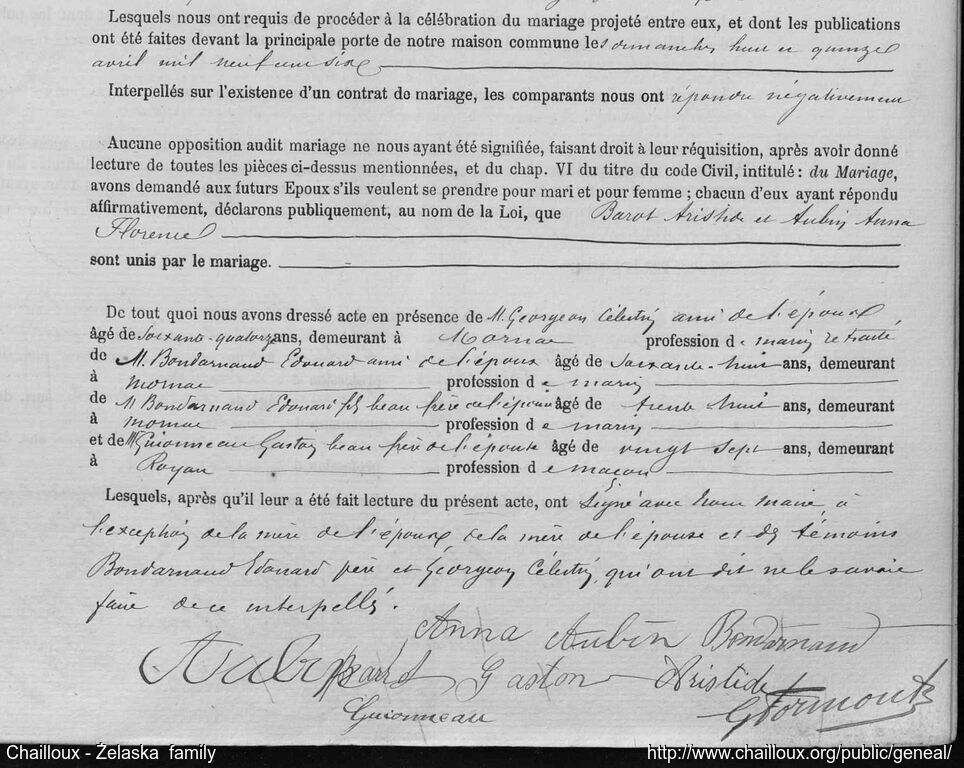 Lesquels nous ont requis de procéder à la célébration du mariage projeté entre eux, et dont les publications
ont été faites devant la principale porte de notre maison commune les dimanches huit et quinze
avril mil neuf cent six
Interpellés sur l'existence d'un contrat de mariage, les comparants nous ont répondu négativement
Aucune opposition audit mariage ne nous ayant été signifiée, faisant droit à leur réquisition, après avoir donné
lecture de toutes les pièces ci-dessus mentionnées, et du chap. VI du titre du code Civil, intitulé : du Mariage,
avons demandé aux futurs Epoux s'ils veulent se prendre pour mari et pour femme ; chacun d'eux ayant répondu
affirmativement, déclarons publiquement, au nom de la Loi, que Barot Aristide et Aubin Anna
Florence
sont unis par le mariage.
De tout quoi nous avons dressé acte en présence de M. Georgeon Célestin ami de l'époux,
âgé de Soixante-quatorze ans, demeurant à Mornac profession de marin retraité
de M. Bondarnaud Edouard ami de l'époux âgé de Soixante-huit ans, demeurant
à Mornac profession de marin
de M Bondarnaud Edouard fils beau frère de l'époux âgé de trente huit ans, demeurant
à Mornac profession de marin
et de M Guionneau Gaston beau frère de l'épouse âgé de vingt sept ans, demeurant
à Royan profession de maçon
Lesquels, après qu'il leur a été fait lecture du présent acte, ont Signé avec Nous Maire, à
l'exception de la mère de l'époux, de la mère de l'épouse et des témoins
Bondarnaud Edouard père et Georgeon Célestin, qui ont dit ne le savoir
faire de ce interpellés.
Anna Aubin Bondarnaud
Aubin Barot Gaston Aristide
Guionneau